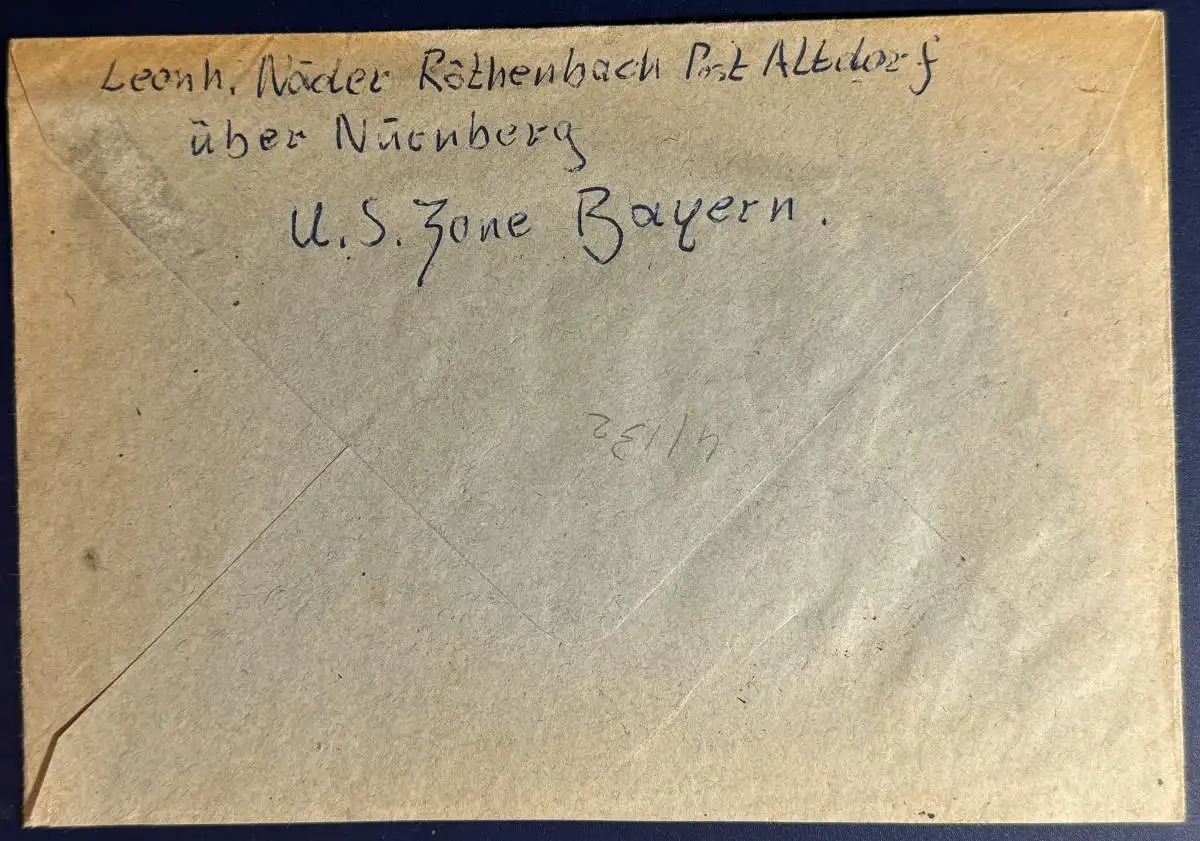 Leonh. Näder Röthenbach Post Altdorf
über Nürnberg
U.S. Zone Bayern.
4/132